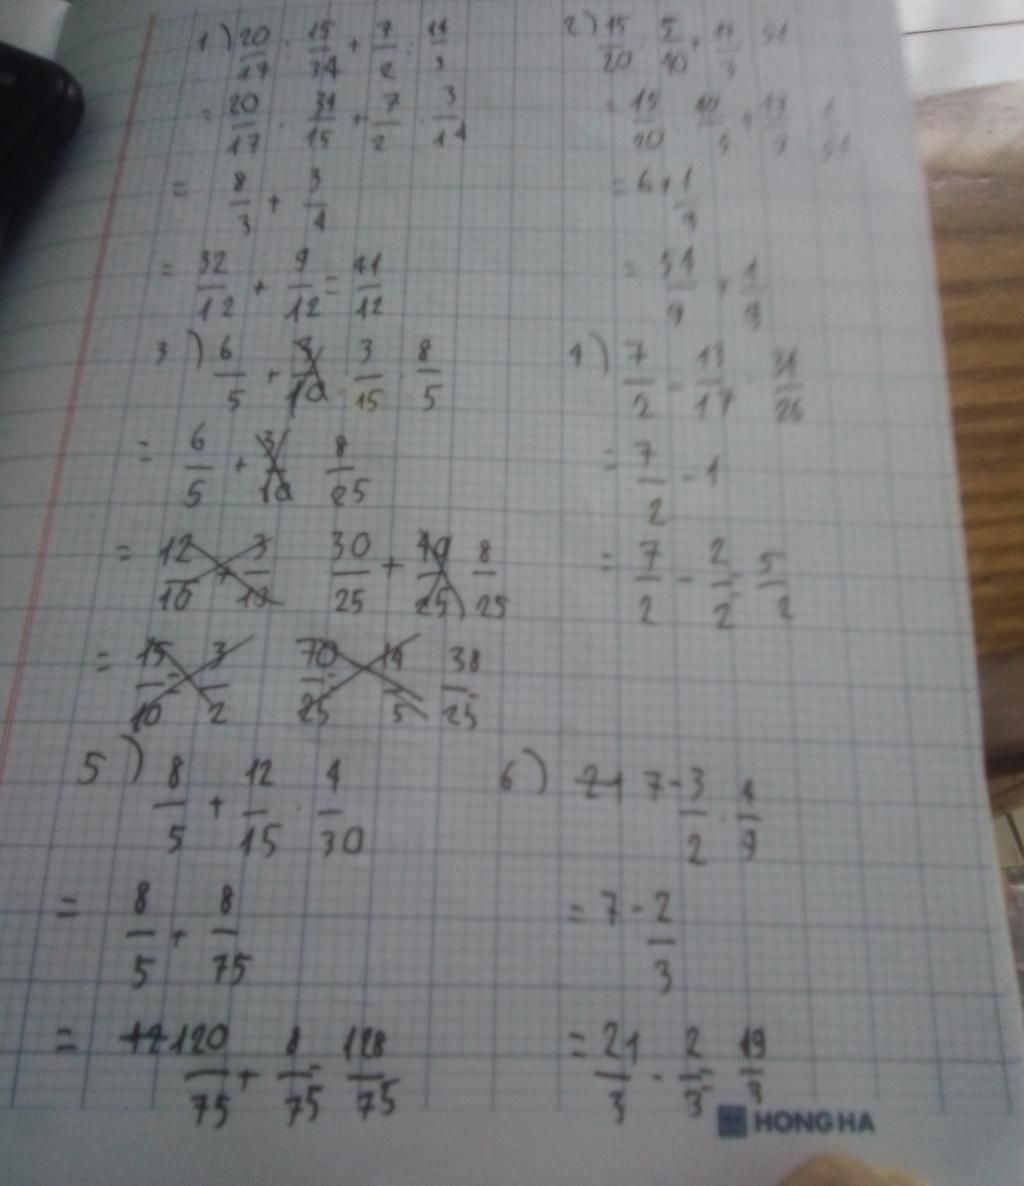 1) 20/17 : 15/34 + 7/2 : 14/3
= 20/17 . 34/15 + 7/2 . 3/14
= 8/3 + 3/4
= 32/12 + 9/12 = 41/12
2) 15/20 : 5/10 + 17/3
= 15/20
= 6 + 1/9
= 54/9 + 1/9
3) 6/5 + 3/15 . 8/5
= 6/5 + 8/25
= 30/25 + 8/25
= 38/25
4) 7/2 - 13/17 . 34/26
= 7/2 - 1
= 7/2 - 2/2 = 5/2
5) 8/5 + 12/15 . 4/30
= 8/5 + 8/75
= 120/75 + 8/75 = 128/75
6) 7 - 3/2 . 4/9
= 7 - 2/3
= 21/3 - 2/3 = 19/3
HONG HA